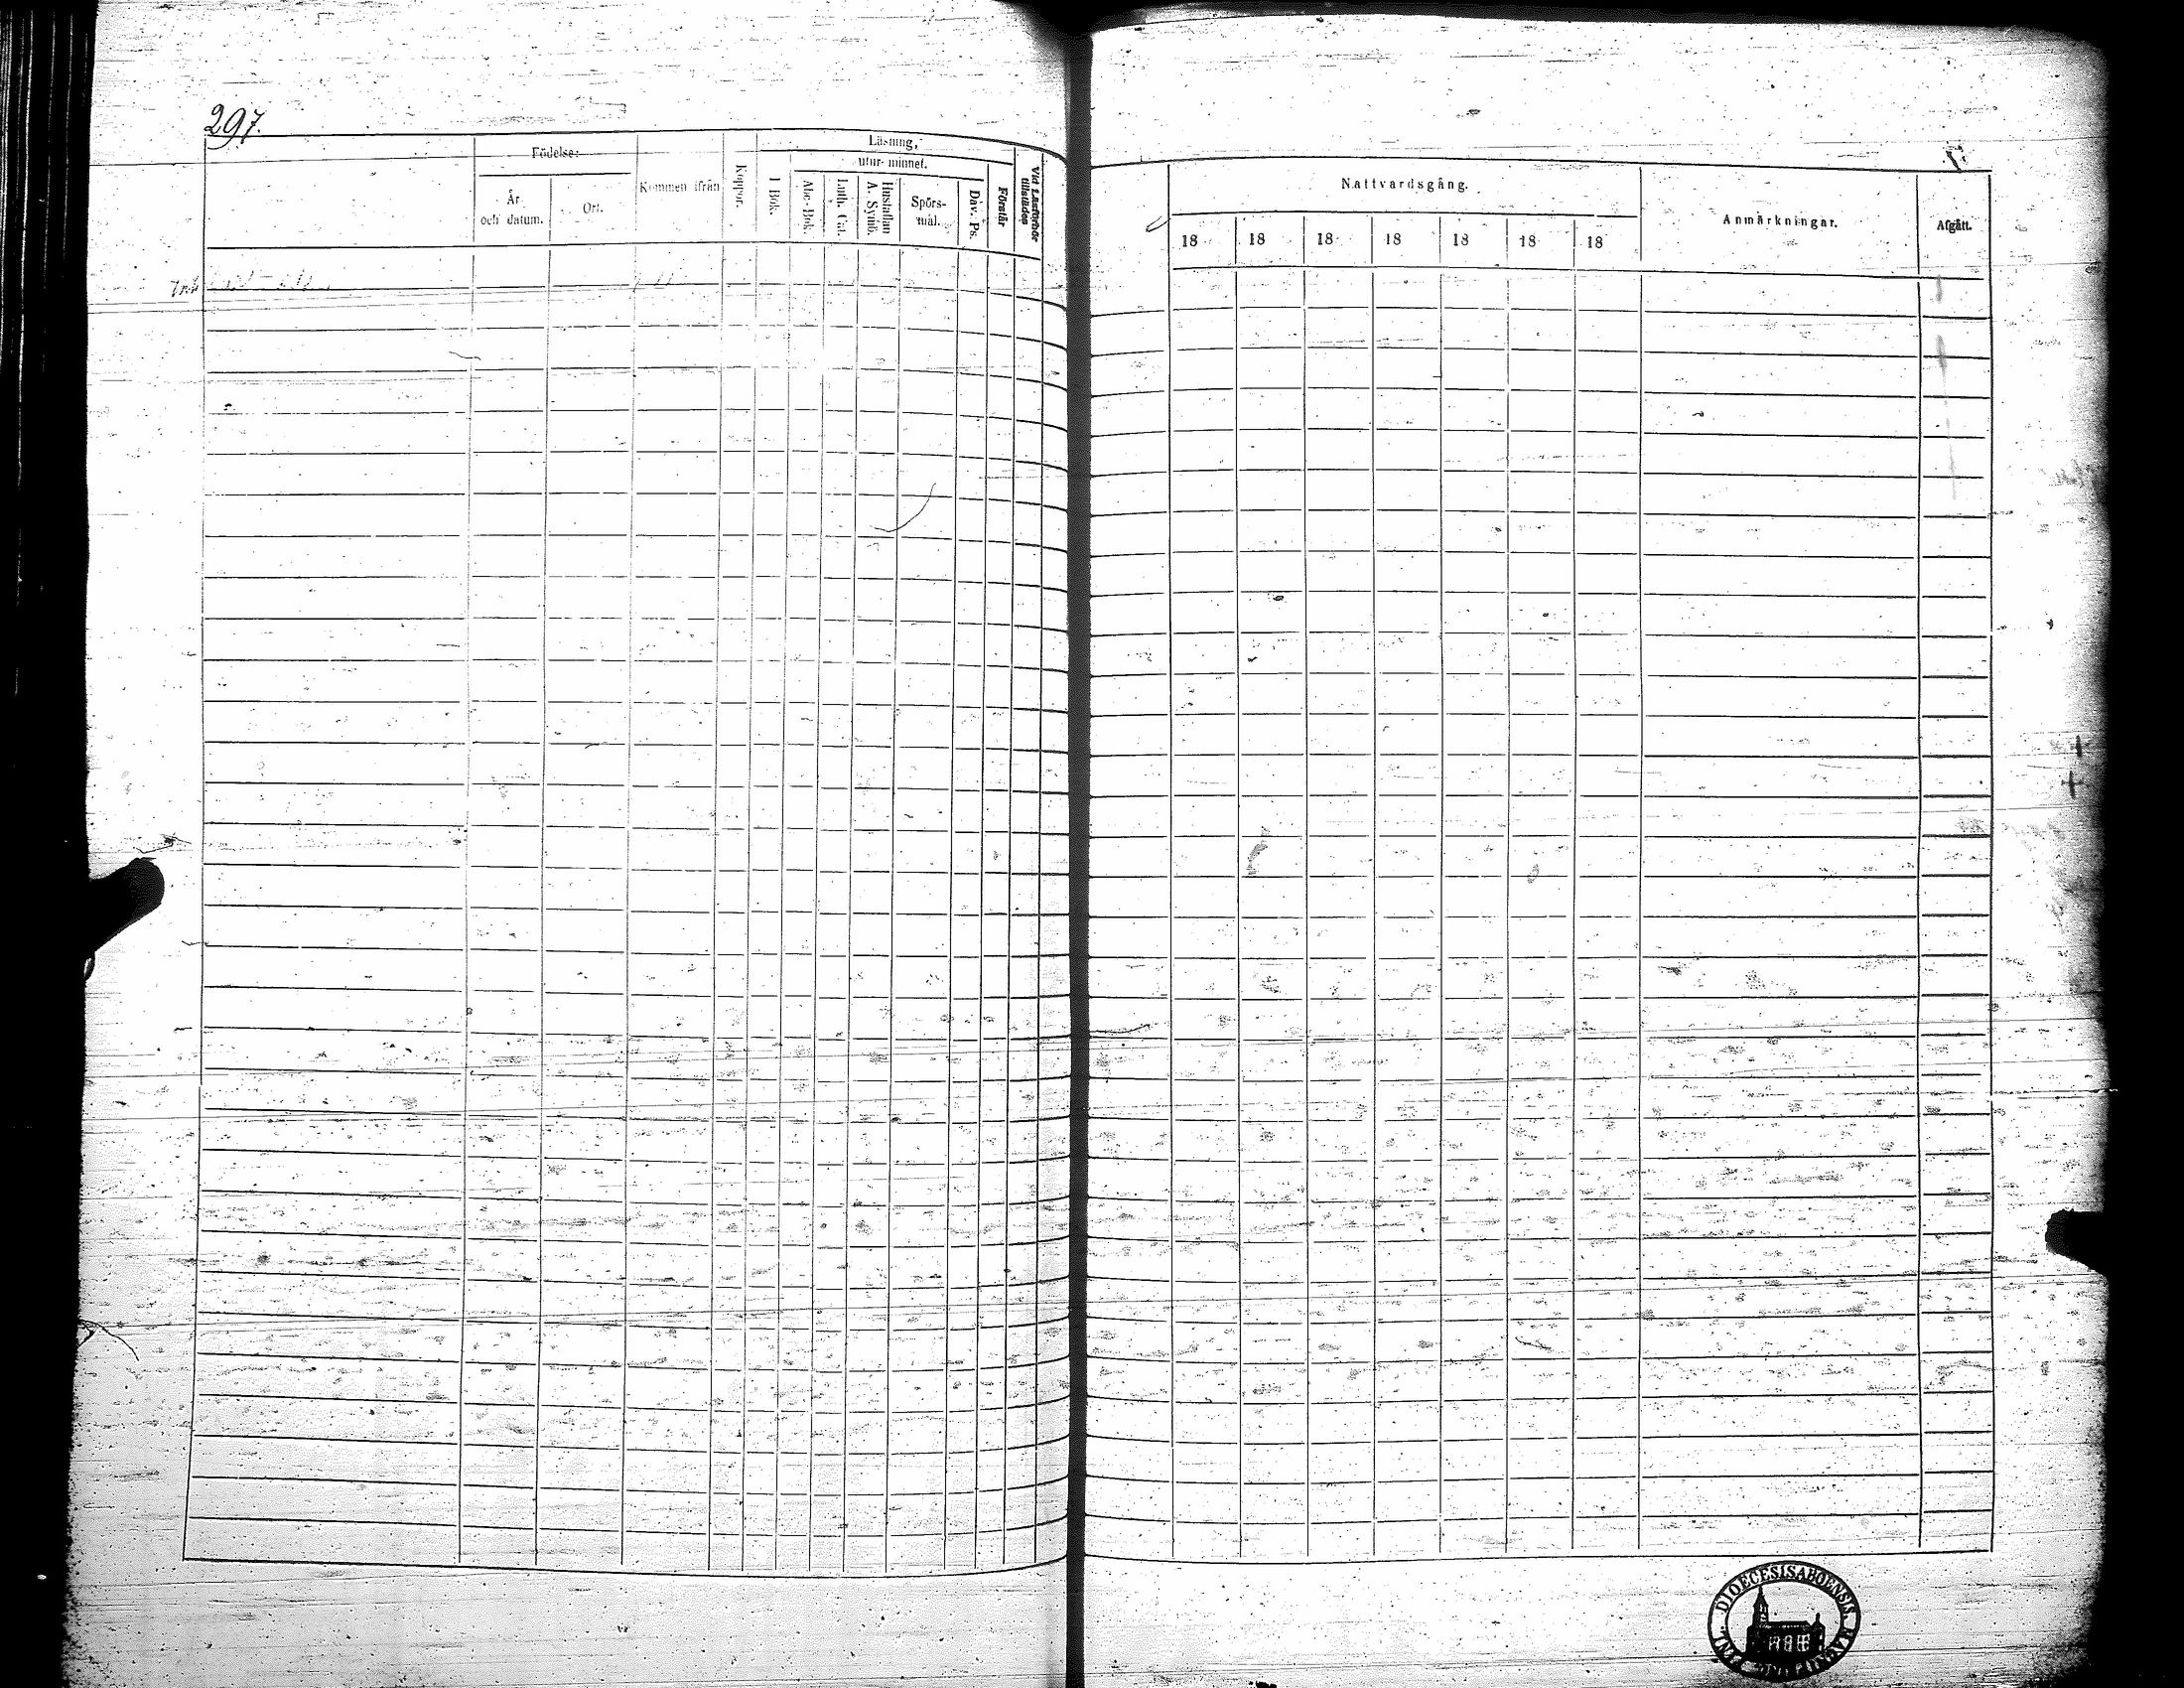 297.
Födelse:
År och datum.
Ort.
Kommen ifrån
Koppor.
Läsning,
I Bok.
utur minnet.
Abc-Bok.
Luth. Cat.
Hustaflan A. Symb.
Spörs-mål.
Dav. Ps.
Förstår
Vid Läsförhör tillstädes
Nattvardsgång.
18 18 18 18 18 18 18
Anmärkningar.
Afgått.
DIOECESIS ABOENSIS